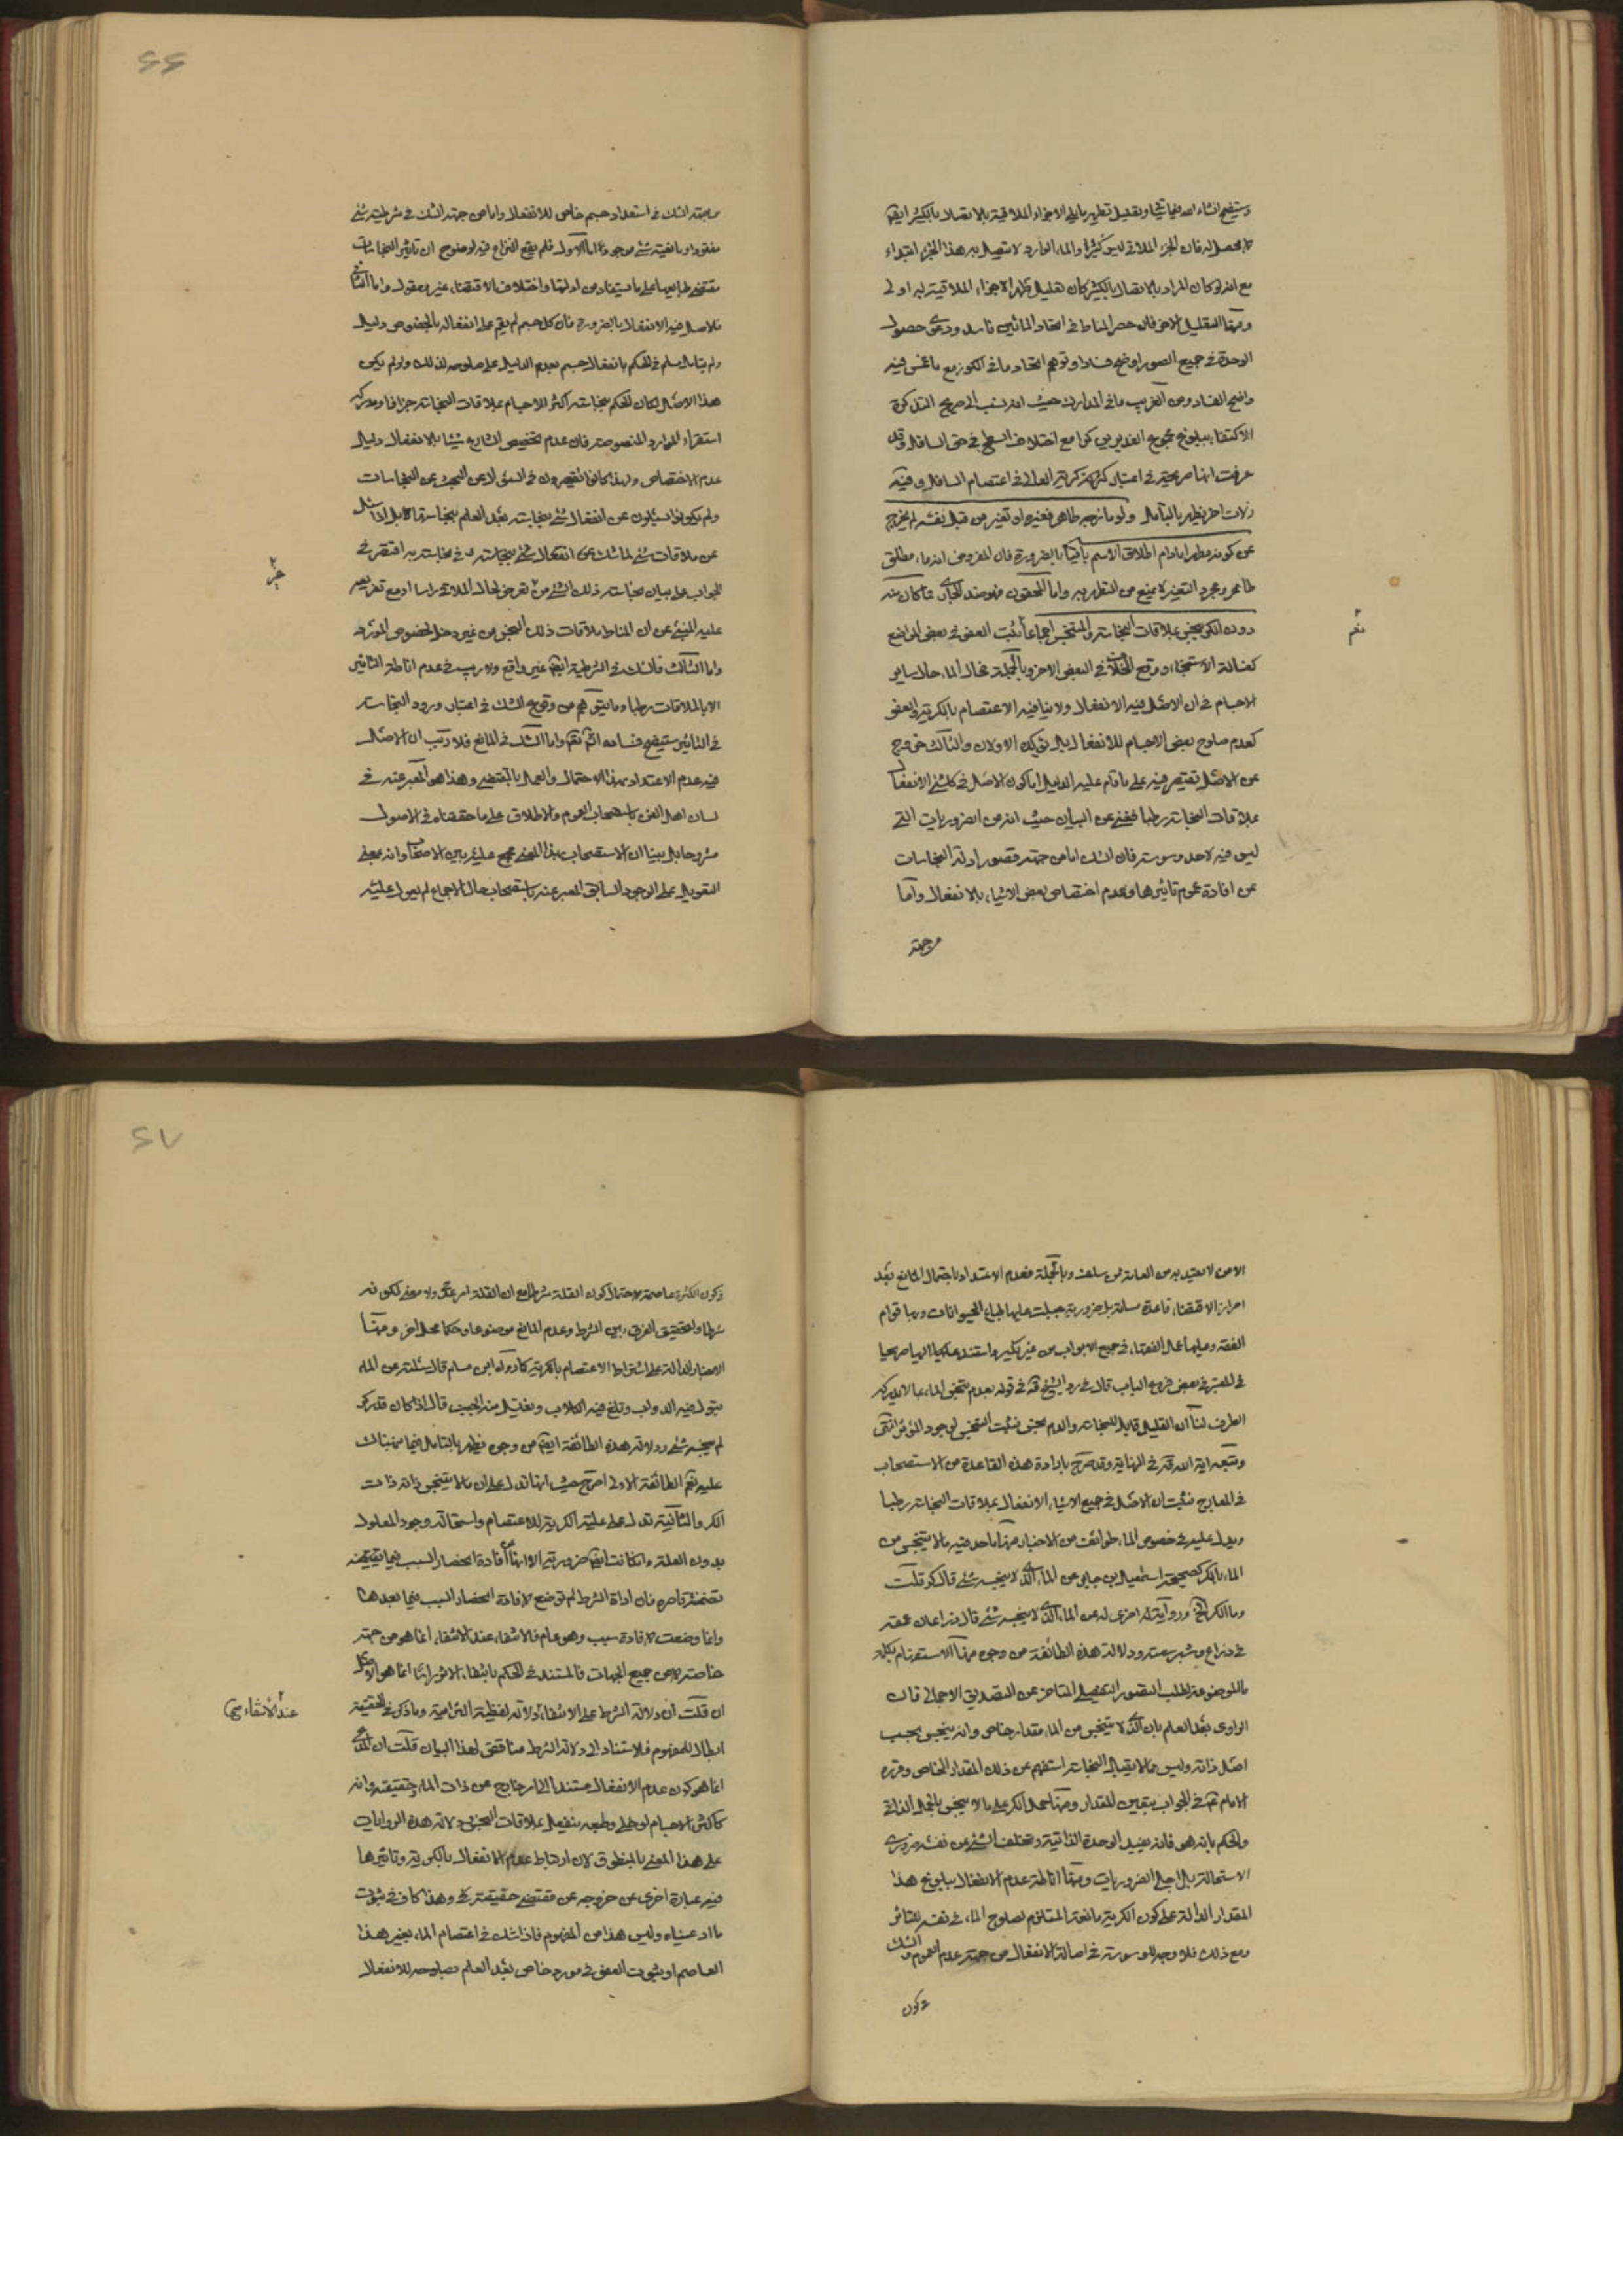 وستيضح انشاء الله تعالى شيئا وتعليل تطهير ماء الاجزاء الملاقية بالاتصال بالكثير ايضا
مما لا محصل له فان الجزء الملاقي ليس كثيرا والماء الوارد لا يتصل به هذا الجزء ابتداء
مع انه لو كان المراد بالاتصال بالكثير كان تعليل تطهر الاجزاء الملاقية به اولى
ومنها التعليل الاخر فان حصر المناط في اتحاد المائين فاسد ودعوى حصول
الوحدة في جميع الصور اوضح فسادا وتوهم اتحاد ماء في الكوز مع ما غمس فيه
واضح الفساد ومن الغريب ما في المدارك حيث انه نسب الى صريح التذكرة
الاكتفاء ببلوغ مجموع الغديرين كرا مع اختلاف السطح في حق السافل وقد
عرفت انها صريحة في اعتبار كرية العالي في اعتصام السافل وفيه
زلات اخر يظهر بالتأمل ولو مازجه طاهر فغيره او تغير من قبل نفسه لم يخرج
عن كونه مطهرا مادام اطلاق الاسم باقيا بالضرورة فان المفروض انه ماء مطلق
طاهر ومجرد التغير لا يمنع من التطهير به واما المحقون فهو ضد الجاري فما كان منه
دون الكر ينجس بملاقات النجاسة والمتنجس اجماعا ثبت العفو في بعض المواضع
كغسالة الاستنجاء ووقع الخلاف في البعض الاخر وبالجملة فحال الماء حال ساير
الاجسام في ان الاصل فيه الانفعال ولا ينافيه الاعتصام بالكرية والعفو
كعدم صلوح بعض الاجسام للانفعال بل يؤكده الاولان والثالث خروج
عن الاصل يقتصر فيه على ما قام عليه الدليل اما كون الاصل في كل شيء الانفعال
بملاقات النجاسة رطبا فغني عن البيان حيث انه من الضروريات التي
ليس فيه لاحد وسوسة فان الشك اما من جهة قصور ادلة النجاسات
عن افادة عموم تاثيرها وعدم اختصاص بعض الاشياء بالانفعال واما
من جهة
نعم
٢٦
من جهة الشك في استعداد جسم خاص للانفعال واما من جهة الشك في شرطية شيء
مفقود او مانعية شيء موجود اما الاول فلم يقع النزاع فيه لوضوح ان تاثير النجاسات
مقتضى طبايعها على ما يستفاد من ادلتها واختلاف الاقتضاء غير معقول واما الثاني
فالاصل فيه الانفعال بالضرورة فان كل جسم لم يقم على انفعاله بالخصوص دليل
ولم يتأمل مسلم في الحكم بانفعال جسم بعدم الدليل على صلوحه لذلك ولو لم يكن
هذا الاصل لكان الحكم بنجاسة اكثر الاجسام بملاقات النجاسة جزافا ومدركه
استقراء الموارد المنصوصة فان عدم تخصيص الشارع شيئا بالانفعال دليل
عدم الاختصاص ولهذا كانوا يقتصرون في السؤال عن البحث عن النجاسات
ولم يكونوا يسئلون عن انفعال شيء بنجاسة بعد العلم بنجاستها بل اذا سئل
عن ملاقات شيء لما شك عن انفعال شيء بنجاسة في نجاسته اقتصر في
الجواب على بيان نجاسة ذلك الشيء من تعرض لحال الملاقي راسا او مع تفريعه
عليه المنبئ عن ان المناط ملاقات ذلك النجس من غير دخل لخصوص المورد
واما الثالث فالشك في الشرطية ايضا غير واقع ولا ريب في عدم اناطة التاثير
الا بالملاقات رطبا وما يتوهم من وقوع الشك في اعتبار ورود النجاسة
في التاثير ستيضح فساده انشاء الله تعالى واما الشك في المانع فلا ريب ان الاصل
فيه عدم الاعتداد بهذا الاحتمال والعمل بالمقتضي وهذا هو المعبر عنه في
لسان اهل الفن باستصحاب العموم والاطلاق على ما حققناه في الاصول
مشروحا بل بينا ان الاستصحاب بهذا المعنى مجمع عليه بين الاصحاب وانه بمعنى
التعويل على الوجود السابق المعبر عنه باستصحاب حال الاجماع لم يعول عليه
٢٧
الا من لا يعتد به من العامة ممن سلف وبالجملة فعدم الاعتداد باحتمال المانع بعد
احراز الاقتضاء قاعدة مسلمة بل ضرورية جبلت عليها طباع الحيوانات وبها قوام
الفقه وعليها عمل الفقهاء في جميع الابواب من غير نكير واستند اليها صريحا
في المعتبر في بعض فروع الباب قال في رد الشيخ قده في قوله بعدم تنجس الماء بما لا يدركه
الطرف لنا ان القليل قابل للنجاسة والدم منجس فثبت التنجس لوجود المؤثر انتهى
وتبعه اية الله قده في النهاية وقد صرح بارادة هذه القاعدة من الاستصحاب
في المعارج فثبت ان الاصل في جميع الاشياء الانفعال بملاقات النجاسة رطبا
ويدل عليه في خصوص الماء طوائف من الاخبار منها ما حد فيه ما لا يتنجس من
الماء بالكر كصحيحة اسمعيل بن جابر عن الماء الذي لا ينجسه شيء قال كر قلت
وما الكر الخ ورواية له اخرى له عن الماء الذي لا ينجسه شيء قال ذراعان عمقه
في ذراع وشبر سعته ودلالة هذه الطائفة من وجوه منها الاستفهام بكلمة
ما الموضوعة لطلب التصور التفصيلي المتاخر عن التصديق الاجمالي فان
الراوي بعد العلم بان الذي لا يتنجس من الماء مقدار خاص وانه يتنجس بحسب
اصل ذاته وليس مما لا يقبل النجاسة استفهم عن ذلك المقدار الخاص وقرره
الامام عم في الجواب بتعيين المقدار ومنها حمل الكر على ما لا ينجس بالحمل الذاتي
والحكم بانه هو فانه يفيد الوحدة الذاتية وتخلف الشيء عن نفسه ضروري
الاستحالة بل اجلى الضروريات ومنها اناطة عدم الانفعال ببلوغ هذا
المقدار الدالة على كون الكرية مانعة المستلزم لصلوح الماء في نفسه للتاثر
ومع ذلك فلا وجه للوسوسة في اصالة الانفعال من جهة عدم العموم والشك
في كون
في كون الكثرة عاصمة لاحتمال كون القلة شرطا مع ان القلة امر عدمي ولا معنى لكونه
شرطا والتحقيق الفرق بين الشرط وعدم المانع موضوعا وحكما محل اخر ومنها
الاخبار الدالة على اشتراط الاعتصام بالكرية كما رواه ابن مسلم قال سئلته عن الماء
تبول فيه الدواب وتلغ فيه الكلاب ويغتسل منه الجنب قال اذا كان قدر كر
لم ينجسه شيء ودلالة هذه الطائفة ايضا من وجوه يظهر بالتامل فيما نبهناك
عليه نعم الطائفة الاولى اصرح حيث انها تدل على ان ما لا يتنجس ذاته ذات
الكر والثانية تدل على علية الكرية للاعتصام واستحالة وجود المعلول
بدون العلة وان كانت ايضا ضرورية الا انها افادة انحصار السبب فيما يقتضيه
تضمنه قاصره فان اداة الشرط لم توضع لافادة انحصار السبب فيما بعدها
وانما وضعت لافادة سبب وهو عام فالانتفاء عند الانتفاء انما هو من جهة
خاصة لا من جميع الجهات فالمستند في الحكم بانتفاء الاثر راسا انما هو الاصل
ان قلت ان دلالة الشرط على الانتفاء دلالة لفظية التزامية وما ذكر في الحقيقة
ابطال للمفهوم فالاستناد الى دلالة الشرط مناقض لهذا البيان قلت ان المدعى
انما هو كون عدم الانفعال مستندا الى امر خارج عن ذات الماء وحقيقته وانه
كاكثر الاجسام لو خلي وطبعه ينفعل بملاقات النجس ودلالة هذه الروايات
على هذا المعنى بالمنطوق لان ارتباط عدم الانفعال بالكرية وتاثيرها
فيه عبارة اخرى عن خروجه عن مقتضى حقيقته وهذا كاف في ثبوت
ما ادعيناه وليس هذا من المفهوم فاذا شك في اعتصام الماء بغير هذا
العاصم او ثبوت العفو في مورد خاص بعد العلم بصلوحه للانفعال
عند الانتفاء صح